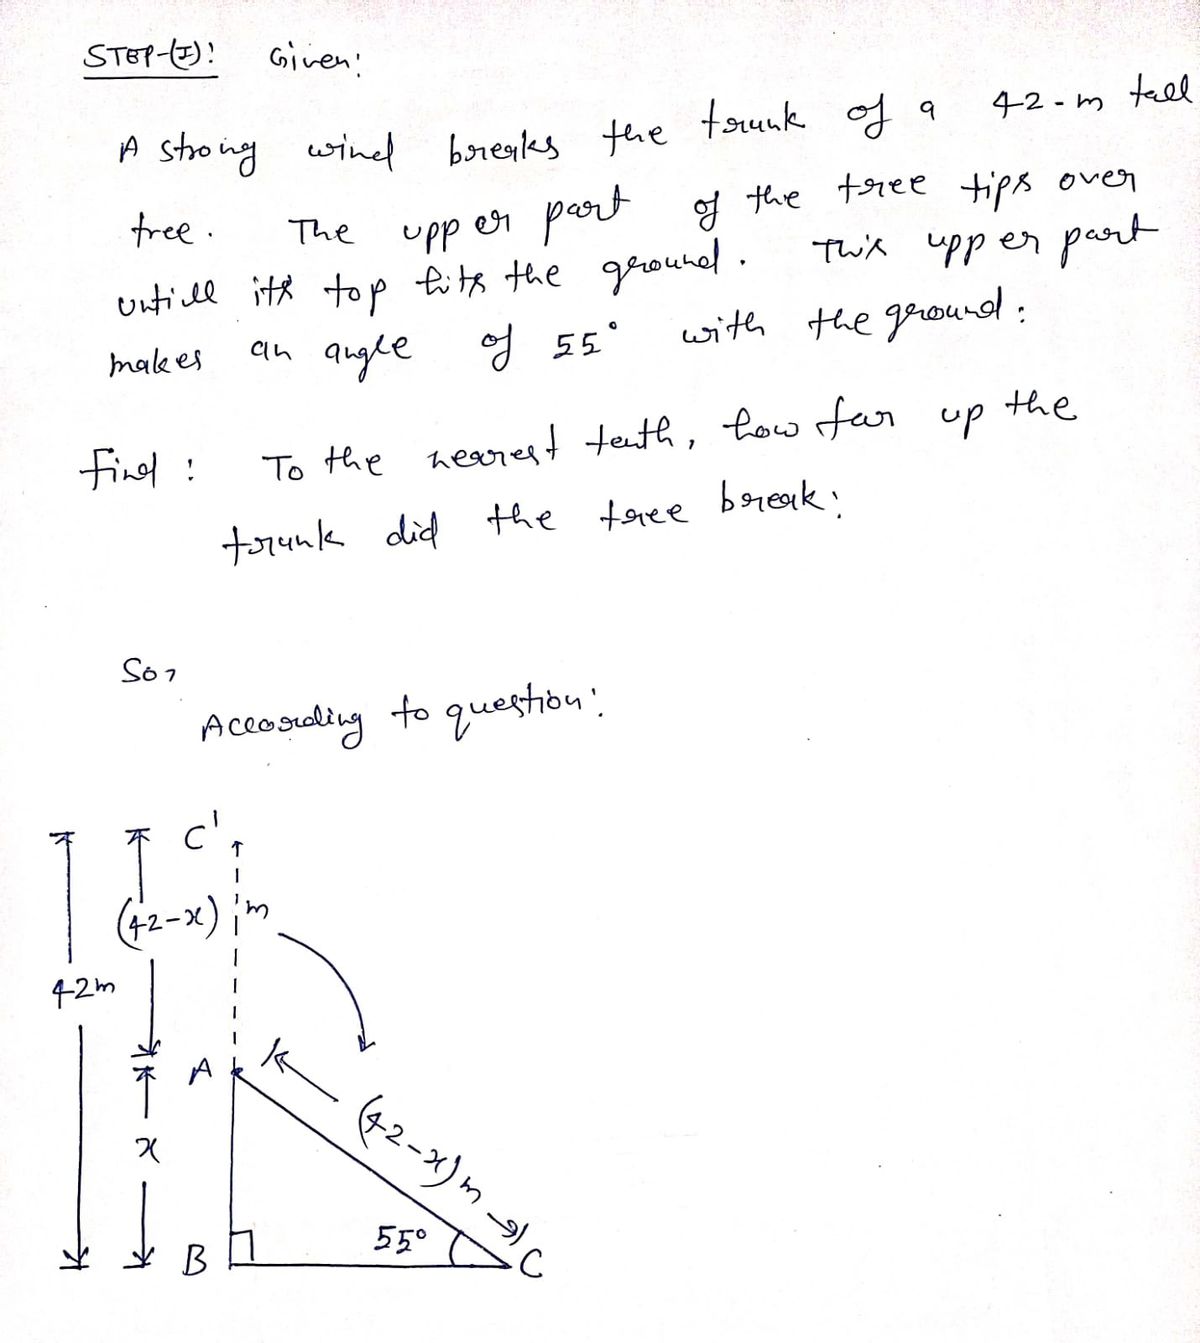 STEP-(I): Given:
A strong wind breaks the trunk of a 42-m tall
tree. The upper part of the tree tips over
untill its top hits the ground. This upper part
makes an angle of 55° with the ground:
Find : To the nearest tenth, how far up the
trunk did the tree break:
So,
According to question:
C'
(42-x) m
42m
A
(42-x) m
x
55°
B
C